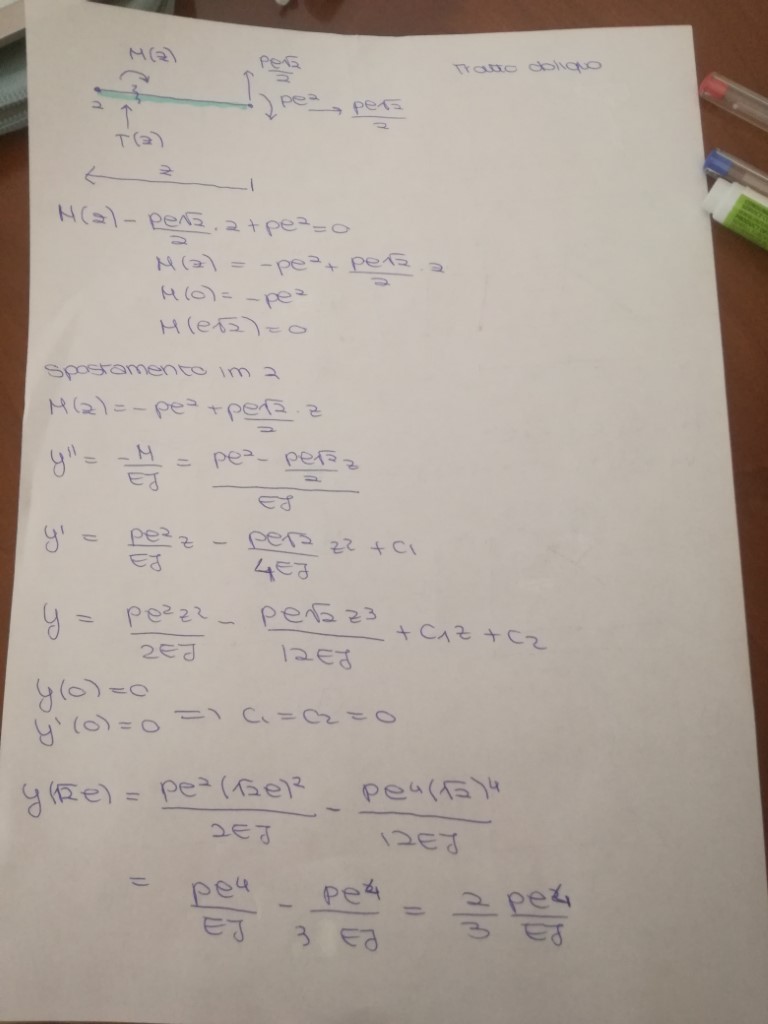 M(z)
pe√2/2
Tratto obliquo
2
pe²
pe√2/2
T(z)
z
1
M(z) - pe√2/2 · z + pe² = 0
M(z) = -pe² + pe√2/2 · z
M(0) = -pe²
M(e√2) = 0
Spostamento in 2
M(z) = -pe² + pe√2/2 · z
y'' = -M/EJ = (pe² - pe√2/2 z)/EJ
y' = pe²/EJ z - pe√2/4EJ z² + C1
y = pe²z²/2EJ - pe√2 z³/12EJ + C1z + C2
y(0) = 0
y'(0) = 0 => C1 = C2 = 0
y(√2e) = pe²(√2e)²/2EJ - pe⁴(√2)⁴/12EJ
= pe⁴/EJ - pe⁴/3EJ = 2/3 pe⁴/EJ